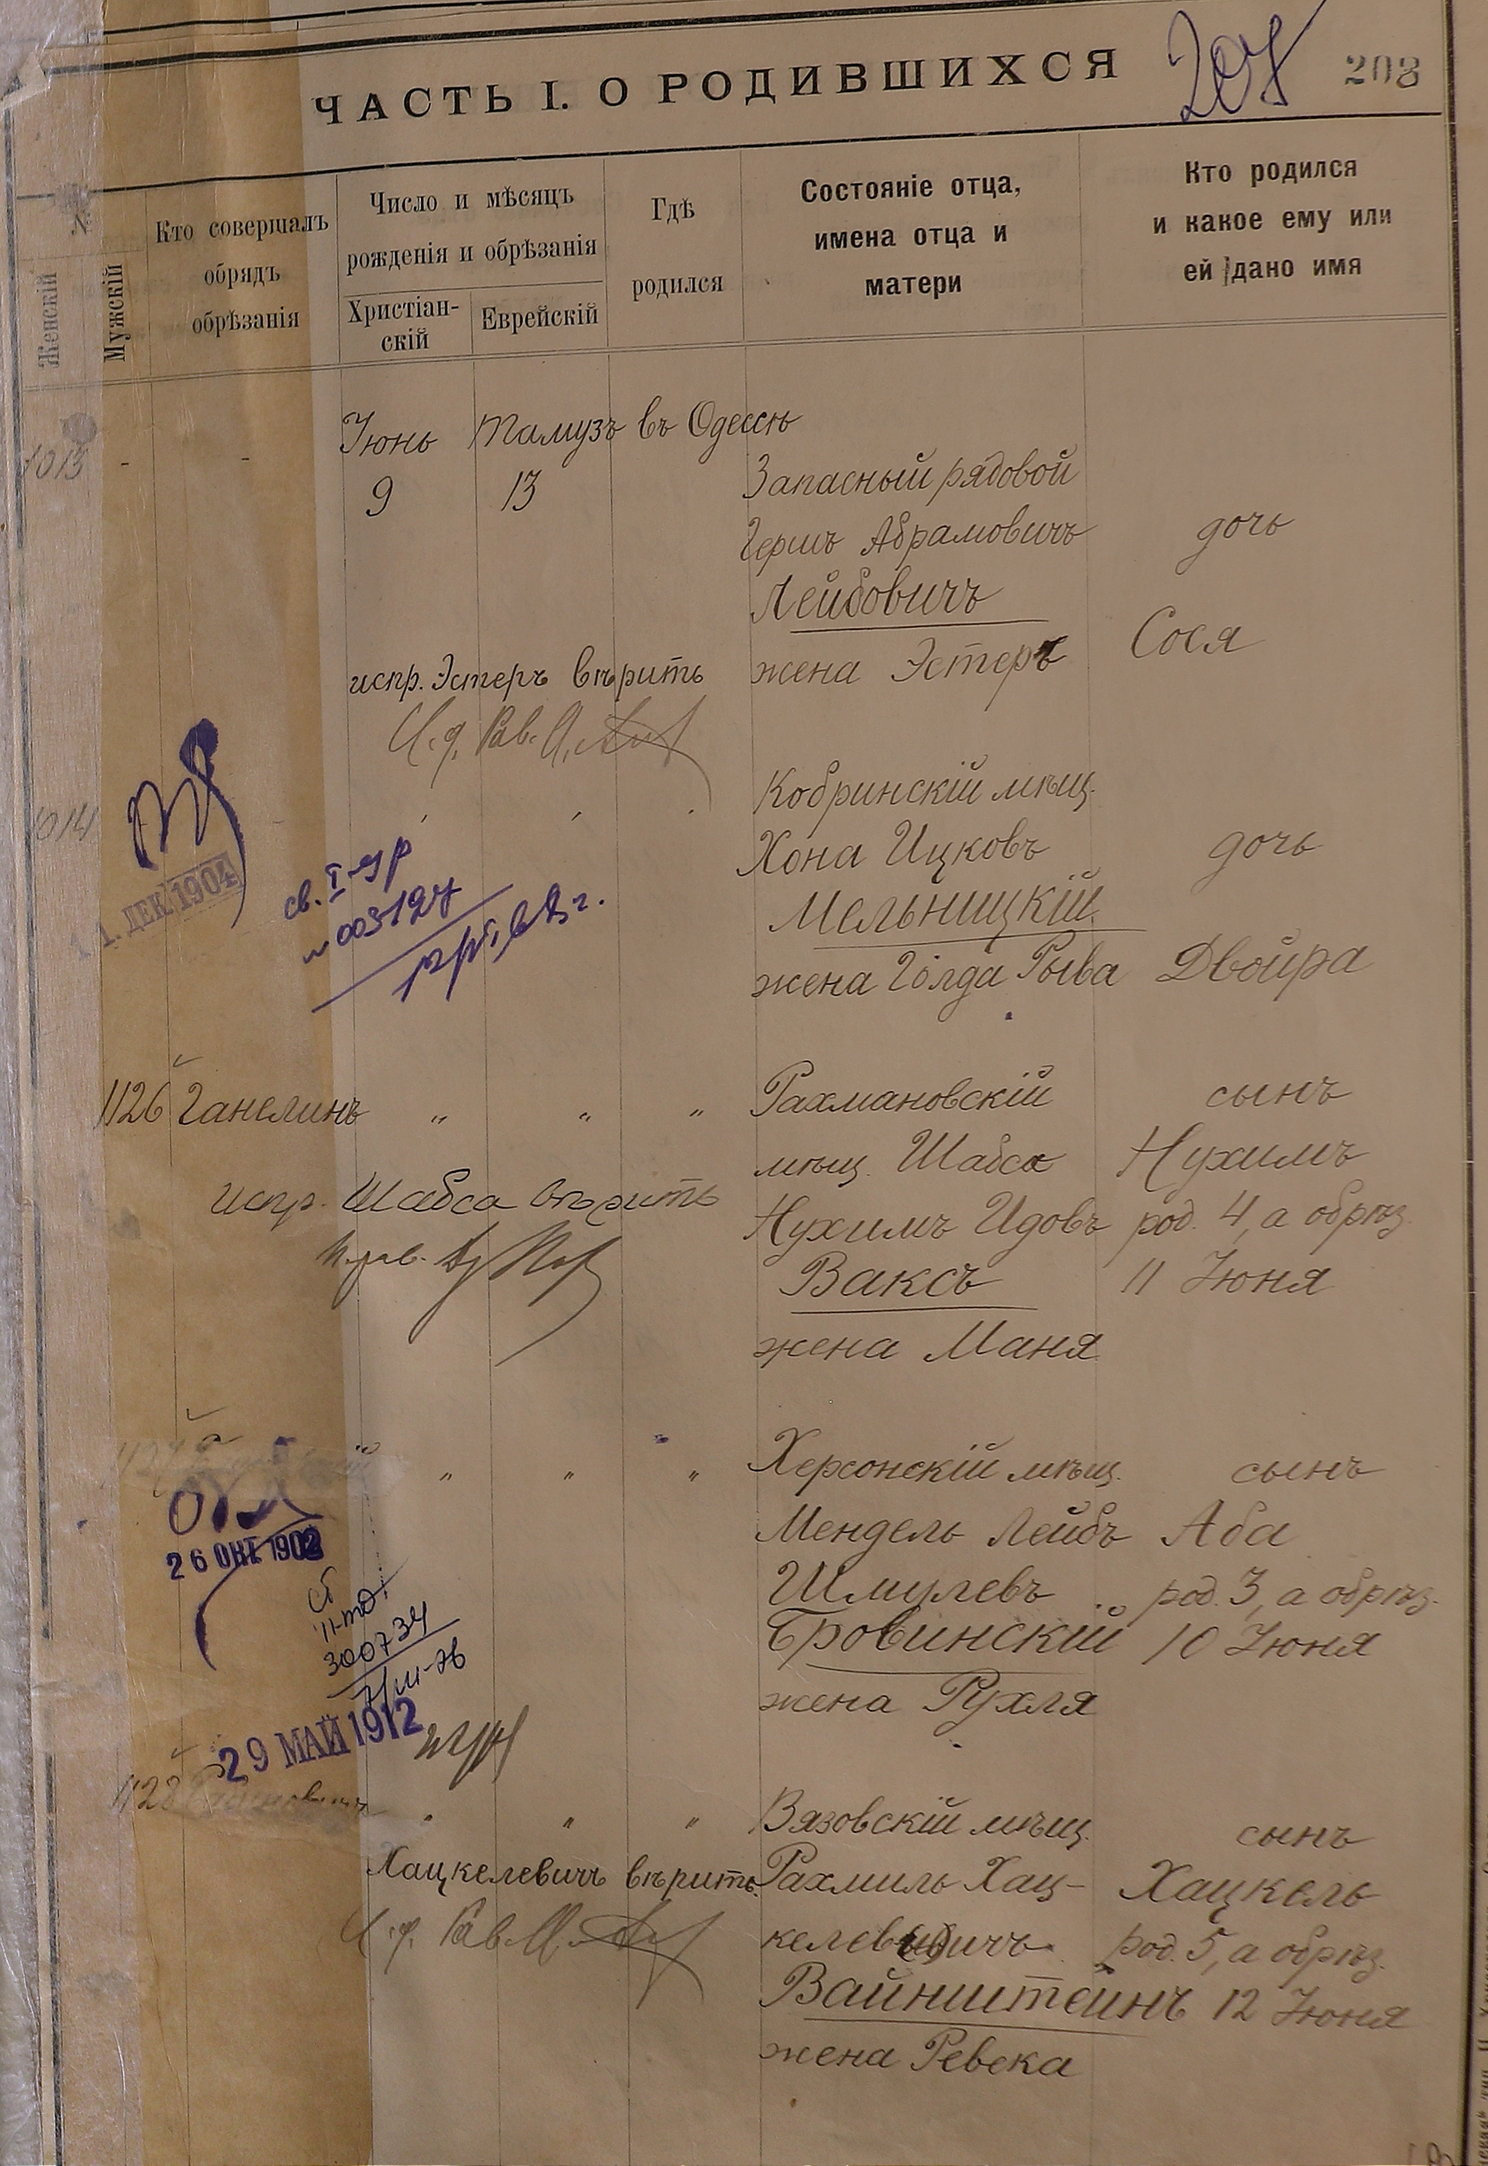 ЧАСТЬ I. О РОДИВШИХСЯ
207 208
№
Женскій
Мужскій
Кто совершалъ
обрядъ
обрѣзанія
Число и мѣсяцъ
рожденія и обрѣзанія
Христіан-
скій
Еврейскій
Гдѣ
родился
Состояніе отца,
имена отца и
матери
Кто родился
и какое ему или
ей дано имя
1013 - -
Іюнь Тамузъ въ Одессѣ
9 13
Запасный рядовой
Гершъ Абрамовичъ дочь
Лейбовичъ
жена Эстеръ Сося
испр. Эстеръ вѣрить
И. д. Рав.
1014
Кобринскій мѣщ.
Хона Ицковъ дочь
Мельницкій
жена Голда Рыва Двойра
11. ДЕК 1904
св. I-
№ 003127
1126 Ганелинъ " " " Рахмановскій сынъ
мѣщ. Шабса Нухимъ
Нухимъ Идовъ род. 4, а обрѣз.
Ваксъ 11 Іюня
жена Маня
испр. Шабса вѣрить
" " " Херсонскій мѣщ. сынъ
Мендель Лейбъ Аба
Шмулевъ род. 3, а обрѣз.
Бровинскій 10 Іюня
жена Рухля
26 ОКТ 1902
300734
29 МАЙ 1912
1128 " " Вязовскій мѣщ. сынъ
Рахмиль Хац- Хацкель
келевичъ род. 5, а обрѣз.
Вайнштейнъ 12 Іюня
жена Ревека
Хацкелевичъ вѣрить.
И. д. Рав.